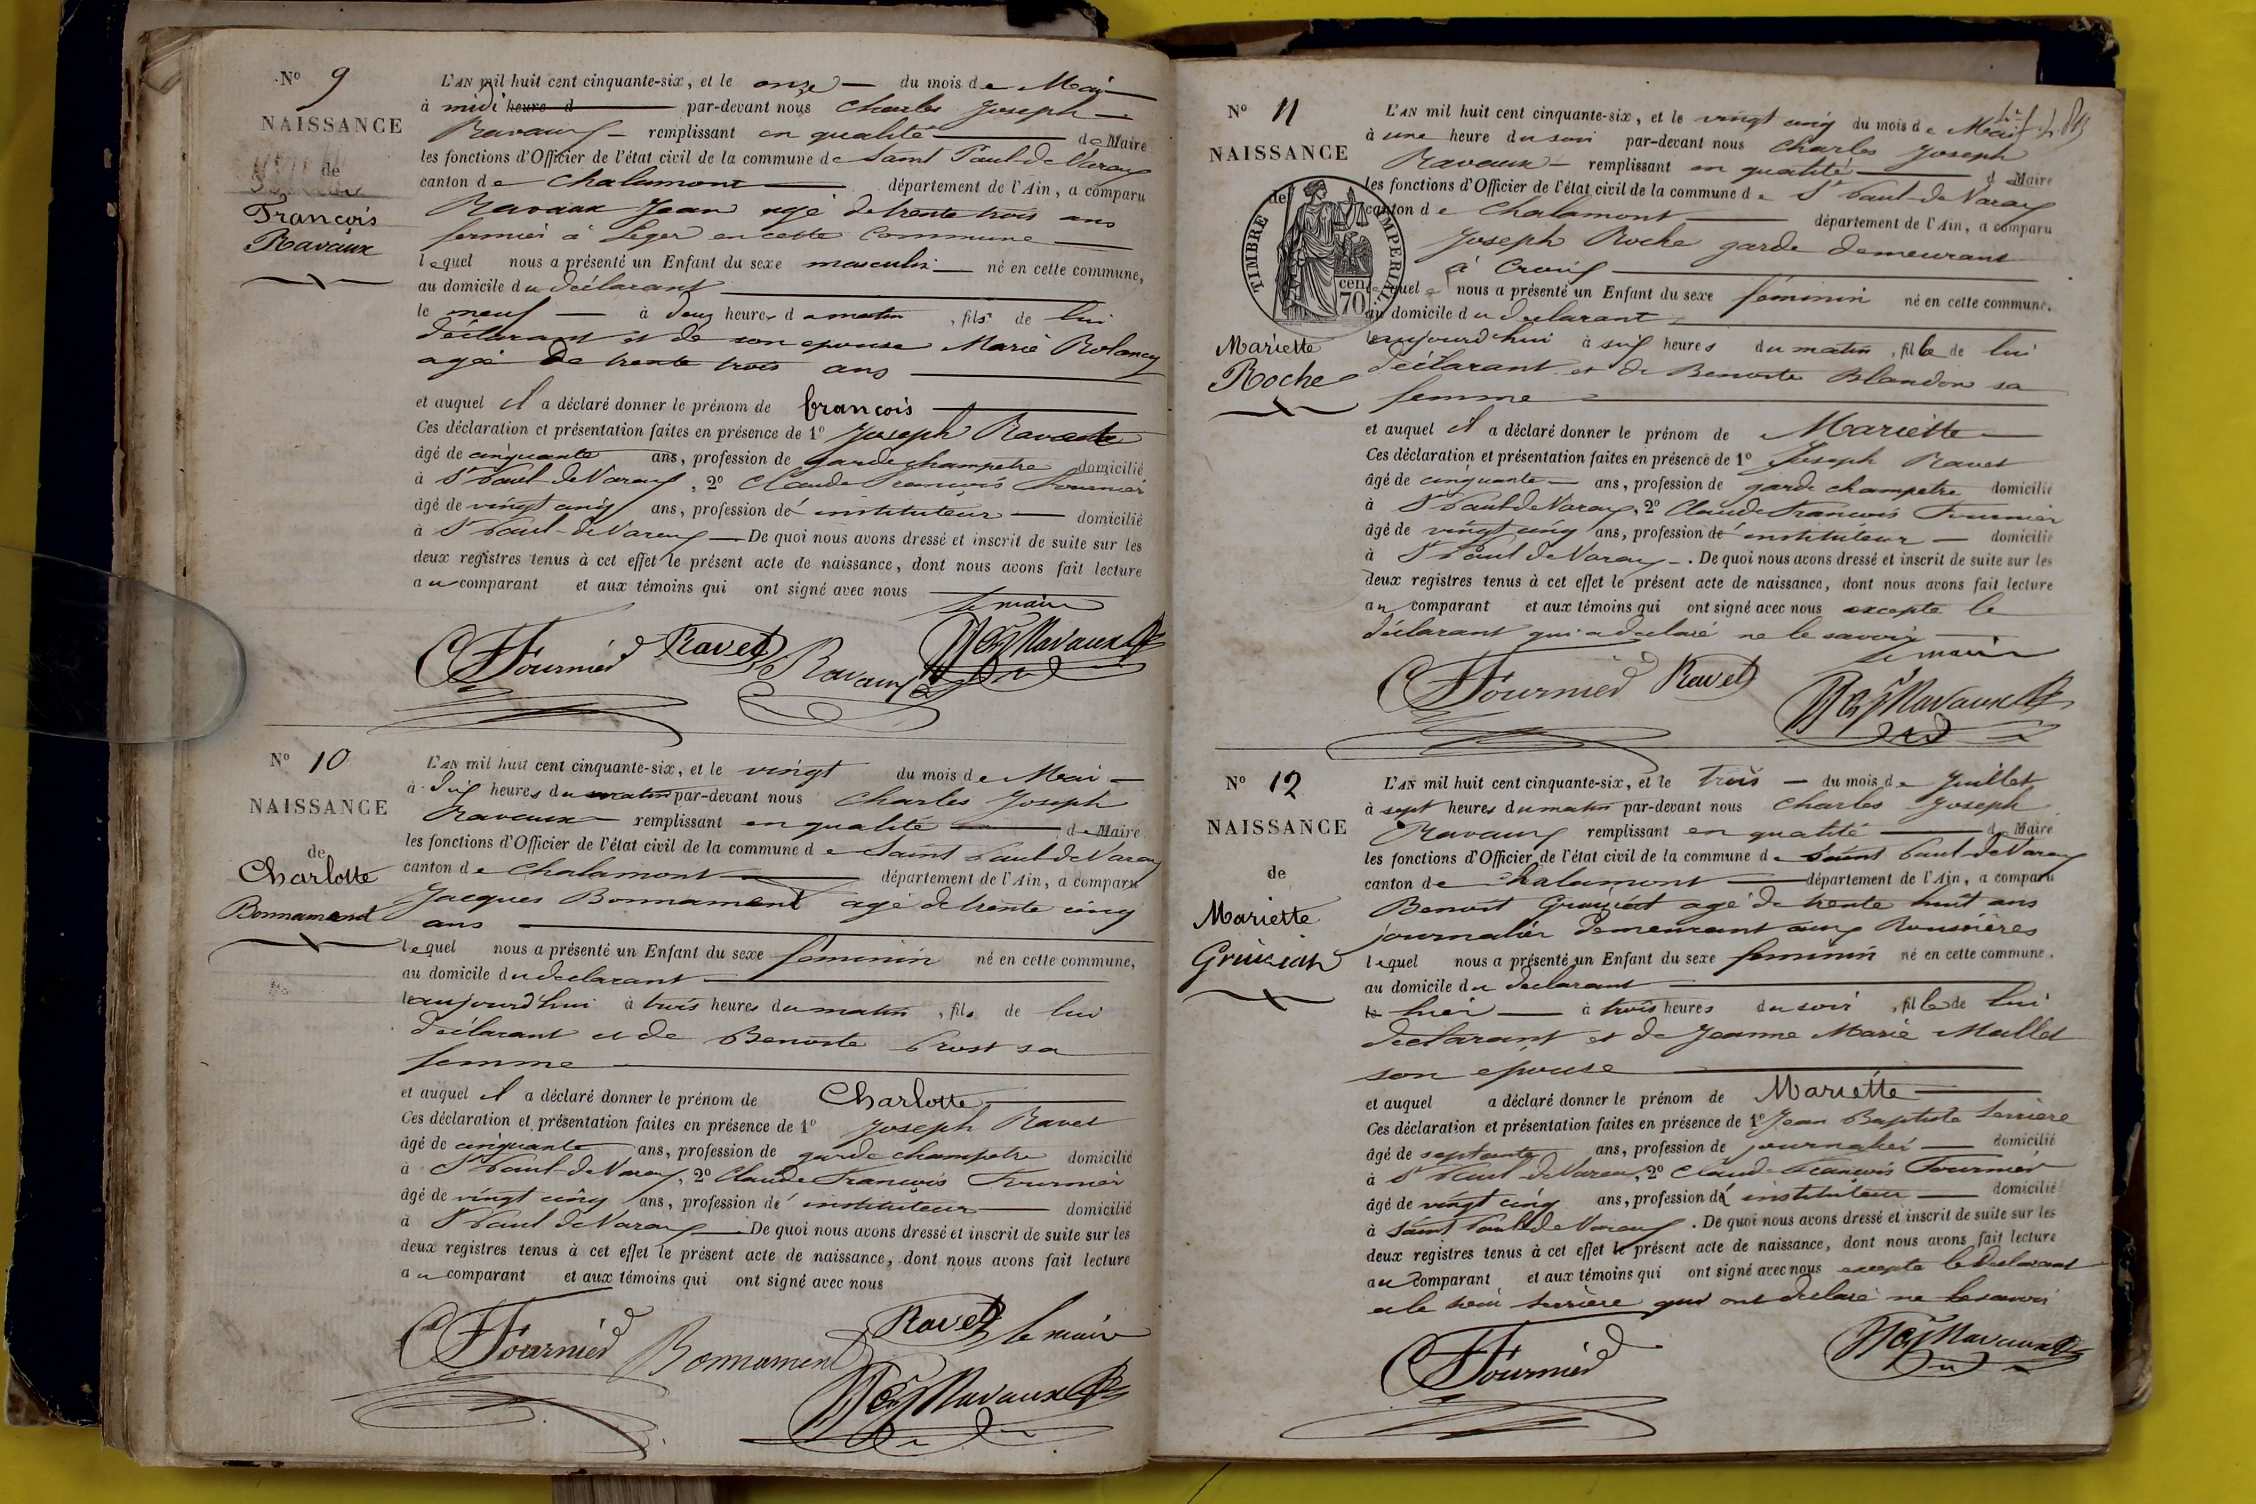 N° 9
NAISSANCE
de
François
Ravaux
L'AN mil huit cent cinquante-six, et le onze du mois de Mai
à midi heure d par-devant nous Charles Joseph
Ravaux remplissant en qualité de Maire
les fonctions d'Officier de l'état civil de la commune de Saint Paul de Varax
canton de Chalamont département de l'Ain, a comparu
Ravaux Jean agé de trente trois ans
fermier à Leger en cette Commune
lequel nous a présenté un Enfant du sexe masculin né en cette commune,
au domicile du déclarant
le neuf à deux heures du matin, fils de lui
déclarant et de son epouse Marie
agée de trente trois ans
et auquel il a déclaré donner le prénom de françois
Ces déclaration et présentation faites en présence de 1° Joseph Ravet
âgé de cinquante ans, profession de garde champetre domicilié
à St Paul de Varax, 2° Claude François Fournier
âgé de vingt cinq ans, profession dé instituteur domicilié
à St Paul de Varax De quoi nous avons dressé et inscrit de suite sur les
deux registres tenus à cet effet le présent acte de naissance, dont nous avons fait lecture
au comparant et aux témoins qui ont signé avec nous
le maire
Fournier Ravet Ravaux Ravaux
N° 10
NAISSANCE
de
Charlotte
Bonnament
L'AN mil huit cent cinquante-six, et le vingt du mois de Mai
à dix heures du matin par-devant nous Charles Joseph
Ravaux remplissant en qualité de Maire
les fonctions d'Officier de l'état civil de la commune de Saint Paul de Varax
canton de Chalamont département de l'Ain, a comparu
Jacques Bonnament agé de trente cinq
ans
lequel nous a présenté un Enfant du sexe féminin né en cette commune,
au domicile du declarant
le aujourd'hui à trois heures du matin, fils de lui
déclarant et de Benoite Prost sa
femme
et auquel il a déclaré donner le prénom de Charlotte
Ces déclaration et présentation faites en présence de 1° Joseph Ravet
âgé de cinquante ans, profession de garde champetre domicilié
à St Paul de Varax, 2° Claude François Fournier
âgé de vingt cinq ans, profession dé instituteur domicilié
à St Paul de Varax De quoi nous avons dressé et inscrit de suite sur les
deux registres tenus à cet effet le présent acte de naissance, dont nous avons fait lecture
au comparant et aux témoins qui ont signé avec nous
Ravet le maire
Fournier Bonnament Ravaux
N° 11
NAISSANCE
de
TIMBRE IMPERIAL
70 cen
Mariette
Roche
L'AN mil huit cent cinquante-six, et le vingt cinq du mois de Mai
à une heure du soir par-devant nous Charles Joseph
Ravaux remplissant en qualité d Maire
les fonctions d'Officier de l'état civil de la commune de St Paul de Varax
canton de Chalamont département de l'Ain, a comparu
Joseph Roche garde demeurant
à
lequel nous a présenté un Enfant du sexe féminin né en cette commune,
au domicile du declarant
le aujourd'hui à six heures du matin, fille de lui
déclarant et de Benoite Blandon sa
femme
et auquel il a déclaré donner le prénom de Mariette
Ces déclaration et présentation faites en présence de 1° Joseph Ravet
âgé de cinquante ans, profession de garde champetre domicilié
à St Paul de Varax, 2° Claude François Fournier
âgé de vingt cinq ans, profession dé instituteur domicilié
à St Paul de Varax. De quoi nous avons dressé et inscrit de suite sur les
deux registres tenus à cet effet le présent acte de naissance, dont nous avons fait lecture
au comparant et aux témoins qui ont signé avec nous excepte le
déclarant qui a declaré ne le savoir
le maire
Fournier Ravet Ravaux
N° 12
NAISSANCE
de
Mariette
L'AN mil huit cent cinquante-six, et le trois du mois de Juillet
à sept heures du matin par-devant nous Charles Joseph
Ravaux remplissant en qualité de Maire
les fonctions d'Officier de l'état civil de la commune de Saint Paul de Varax
canton de Chalamont département de l'Ain, a comparu
Benoit agé de trente huit ans
journalier demeurant aux
lequel nous a présenté un Enfant du sexe féminin né en cette commune,
au domicile du declarant
le hier à trois heures du soir, fille de lui
declarant et de Jeanne Marie Mallet
son epouse
et auquel a déclaré donner le prénom de Mariette
Ces déclaration et présentation faites en présence de 1° Jean Baptiste Serriere
âgé de septante ans, profession de journalier domicilié
à St Paul de Varax, 2° Claude François Fournier
âgé de vingt cinq ans, profession dé instituteur domicilié
à Saint Paul de Varax. De quoi nous avons dressé et inscrit de suite sur les
deux registres tenus à cet effet le présent acte de naissance, dont nous avons fait lecture
au comparant et aux témoins qui ont signé avec nous excepte le declarant
et le Serriere qui ont declaré ne le savoir
Fournier Ravaux